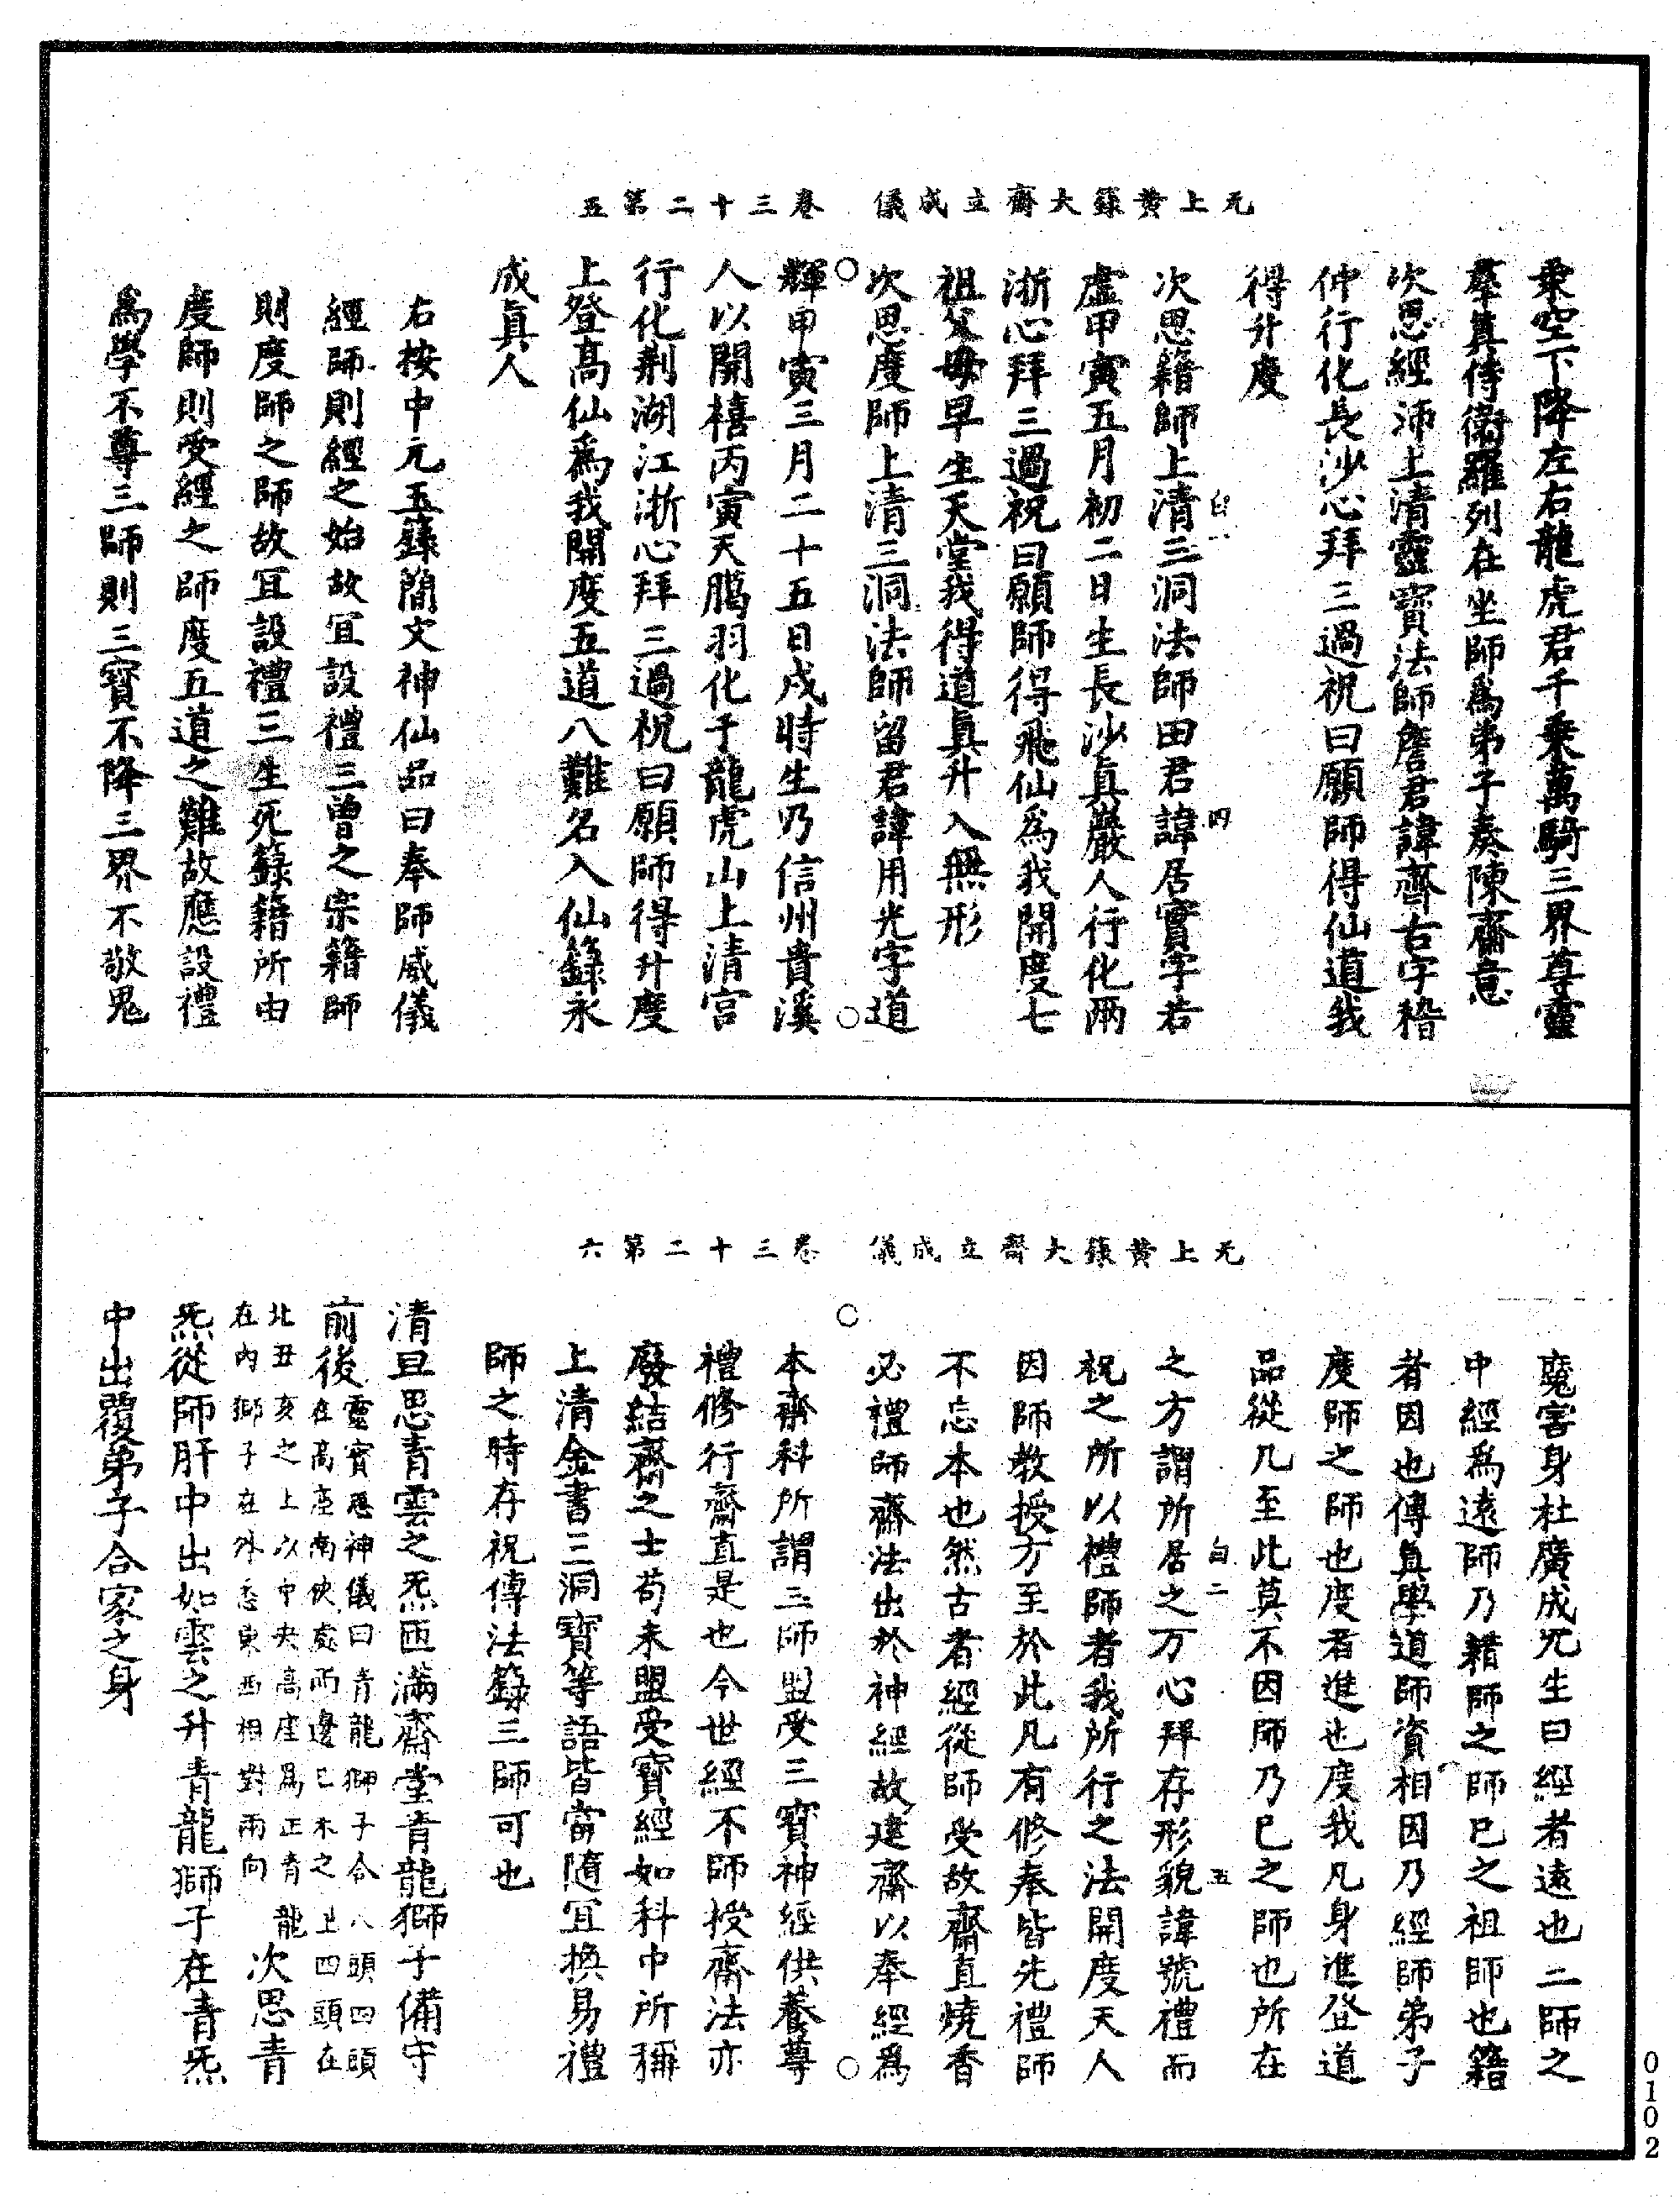 无上黃籙大齋立成儀　卷三十二第五
乗空下降左右龍虎君千乗萬騎三界尊靈
羣真侍衛羅列在坐師爲弟子奏陳齋意
次思經師上清靈寳法師詹君諱齊古字稽
仲行化長沙心拜三過祝曰願師得仙道我
得升度
次思籍師上清三洞法師田君諱居實字若
虛甲寅五月初二日生長沙真巖人行化兩
浙心拜三過祝曰願師得飛仙爲我開度七
祖父母早生天堂我得道真升入無形
次思度師上清三洞法師留君諱用光字道
輝甲寅三月二十五日戌時生乃信州貴溪
人以開禧丙寅天臈羽化于龍虎山上清宫
行化荆湖江浙心拜三過祝曰願師得升度
上登髙仙爲我開度五道八難名入仙籙永
成真人
右按中元玉籙簡文神仙品曰奉師威儀
經師則經之始故冝設禮三曾之宗籍師
則度師之師故冝設禮三生死籙籍所由
度師則受經之師度五道之難故應設禮
爲學不尊三師則三寳不降三界不敬鬼
白
四
无上黃籙大齋立成儀　卷三十二第六
魔害身杜廣成先生曰經者遠也二師之
中經爲遠師乃籍師之師已之祖師也籍
者因也傳真學道師資相因乃經師弟子
度師之師也度者進也度我凡身進登道
品從凡至此莫不因師乃已之師也所在
之方謂所居之方心拜存形貌諱號禮而
祝之所以禮師者我所行之法開度天人
因師教授方至於此凡有修奉皆先禮師
不忘本也然古者經從師受故齋直燒香
必禮師齋法出於神經故建齋以奉經爲
本齋科所謂三師盟受三寳神經供養尊
禮修行齋直是也今世經不師授齋法亦
廢結齋之士苟未盟受寳經如科中所稱
上清金書三洞寳等語皆當隨冝換易禮
師之時存祝傳法籙三師可也
清旦思青雲之炁匝滿齋堂青龍獅子備守
前後靈寳思神儀曰青龍獅子令八頭四頭
在髙座南使處兩邊巳木之上四頭在
北丑亥之上以中央髙座爲正青龍
在内獅子在外悉東西相對兩向次思青
炁從師肝中出如雲之升青龍獅子在青炁
中出覆弟子合家之身
白二
五
0102